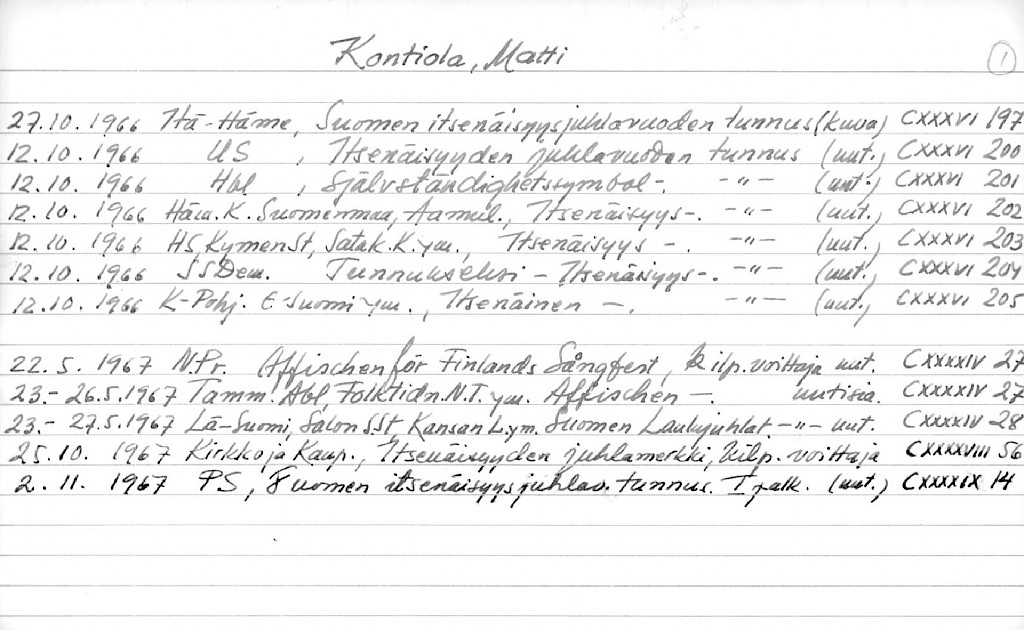 Kontiola, Matti
1
27.10.1966 Itä-Häme, Suomen itsenäisyysjuhlavuoden tunnus (kuva) CXXXVI 197
12.10.1966 US, Itsenäisyyden juhlavuoden tunnus (uut.) CXXXVI 200
12.10.1966 Hbl, Självständighetssymbol -. -"- (uut.) CXXXVI 201
12.10.1966 Häm.K. Suomenmaa, Aamul., Itsenäisyys -. -"- (uut.) CXXXVI 202
12.10.1966 HS, KymenSt, Satak.K. ym., Itsenäisyys -. -"- (uut.) CXXXVI 203
12.10.1966 SSDem. Tunnukseksi - Itsenäisyys -. -"- (uut.) CXXXVI 204
12.10.1966 K-Pohj. E-Suomi ym., Itsenäinen -. -"- (uut.) CXXXVI 205
22.5.1967 N.Pr. Affischen för Finlands Sångfest, kilp.voittaja uut. CXXXXIV 27
23.-26.5.1967 Tamm. Åbl, Folktidn. N.T. ym. Affischen -. uutisia. CXXXXIV 27
23.-27.5.1967 Lä-Suomi, Salon SSt, Kansan L. ym. Suomen Laulujuhlat -"- uut. CXXXXIV 28
25.10.1967 Kirkko ja Kaup., Itsenäisyyden juhlamerkki, kilp.voittaja CXXXXVIII 56
2.11.1967 PS, Suomen itsenäisyysjuhlav. tunnus. I palk. (uut.) CXXXXIX 14